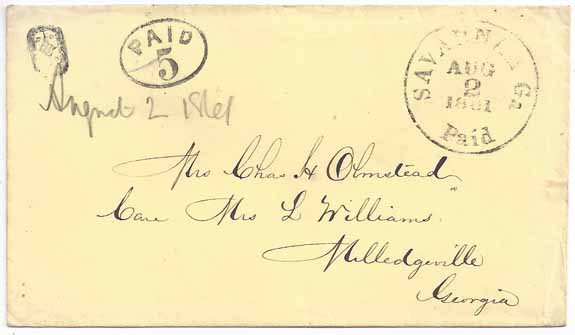 PAID
5
SAVANNAH Ga
AUG
2
1861
Paid
August 2 1861
Mrs Chas H Olmstead
Care Mrs L Williams
Milledgeville
Georgia